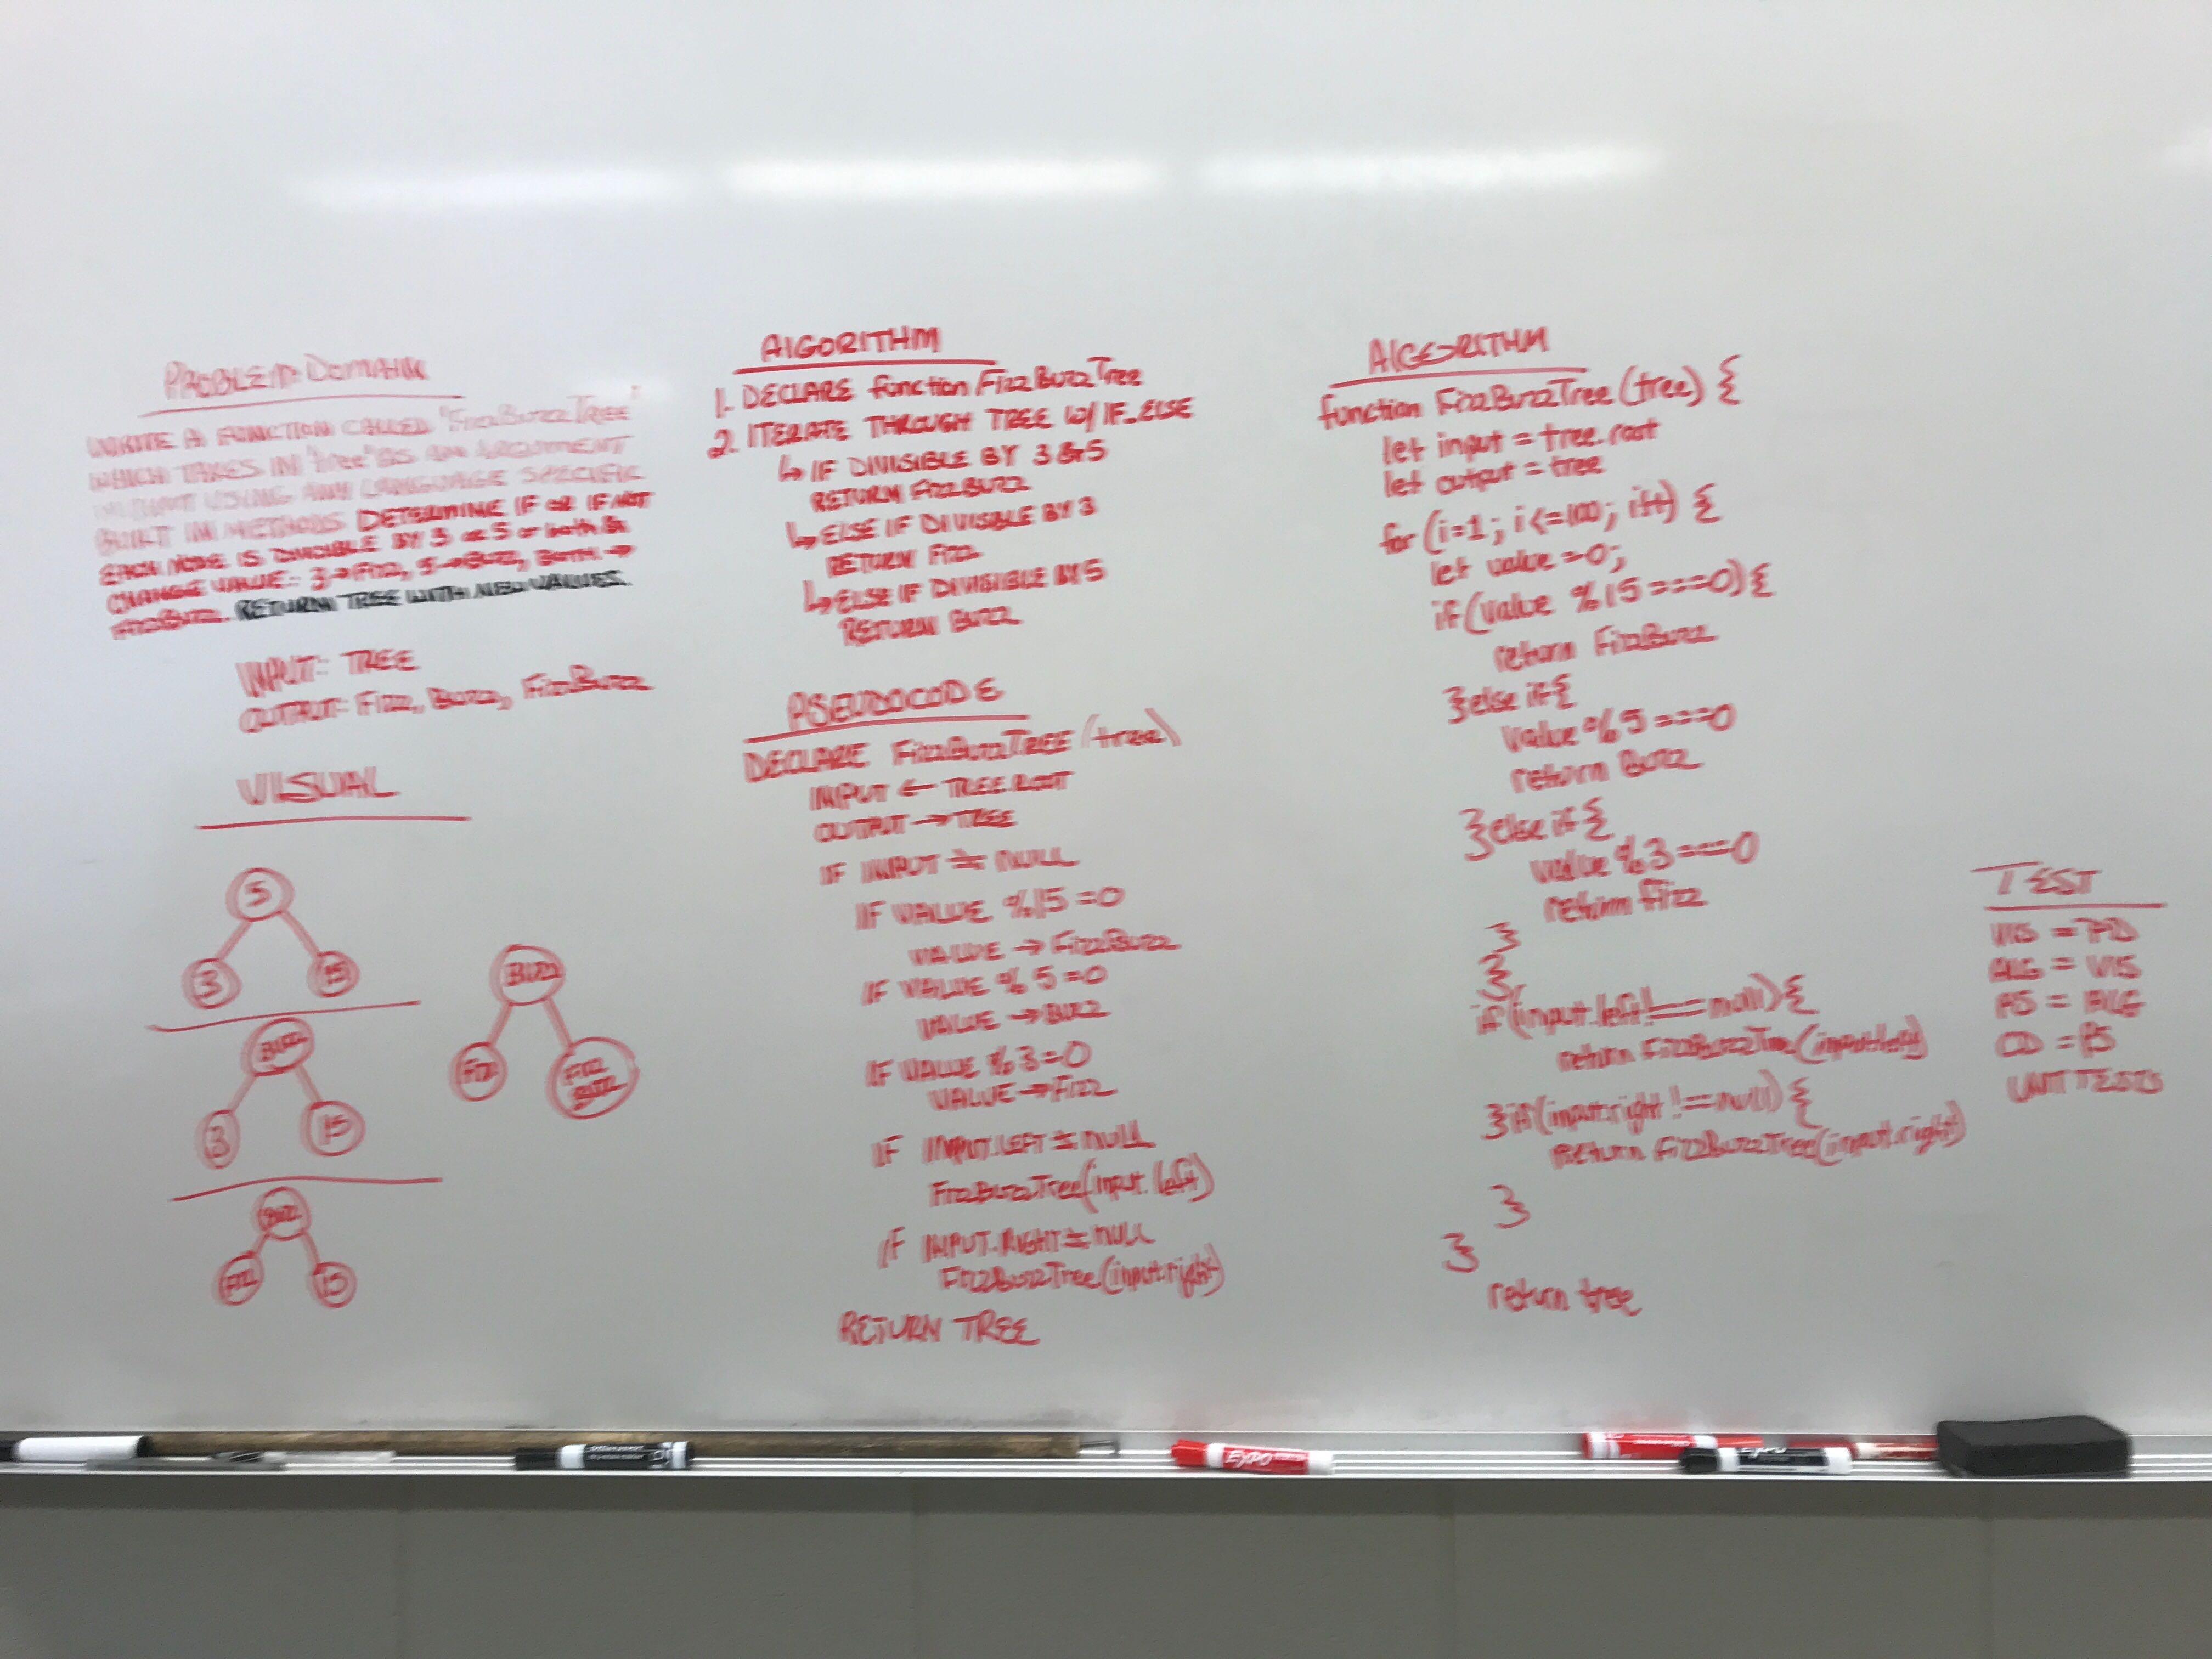 PROBLEM DOMAIN
WRITE A FUNCTION CALLED "FizzBuzzTree"
WHICH TAKES IN "tree" AS AN ARGUMENT
WITHOUT USING ANY LANGUAGE SPECIFIC
BUILT IN METHODS DETERMINE IF OR IF NOT
EACH NODE IS DIVISIBLE BY 3 OR 5 or both &
CHANGE VALUE: 3→Fizz, 5→Buzz, BOTH →
FizzBuzz. RETURN TREE WITH NEW VALUES.
INPUT: TREE
OUTPUT: Fizz, Buzz, FizzBuzz
VISUAL
5
3 15
Buzz
3 15
Buzz
Fizz 15
Buzz
Fizz Fizz
Buzz
ALGORITHM
1. DECLARE function FizzBuzzTree
2. ITERATE THROUGH TREE W/ IF_ELSE
↳ IF DIVISIBLE BY 3 & 5
RETURN FizzBuzz
↳ ELSE IF DIVISIBLE BY 3
RETURN Fizz
↳ ELSE IF DIVISIBLE BY 5
RETURN Buzz
PSEUDOCODE
DECLARE FizzBuzzTREE (tree)
INPUT ← TREE.ROOT
OUTPUT → TREE
IF INPUT ≠ NULL
IF VALUE %15 =0
VALUE → FizzBuzz
IF VALUE % 5 =0
VALUE → Buzz
IF VALUE % 3=0
VALUE → Fizz
IF INPUT.LEFT ≠ NULL
FizzBuzzTree(input.left)
IF INPUT.RIGHT ≠ NULL
FizzBuzzTree(input.right)
RETURN TREE
ALGORITHM
function FizzBuzzTree (tree) {
let input = tree.root
let output = tree
for (i=1; i<=100; i++) {
let value =0;
if (value %15 ===0) {
return FizzBuzz
}else if {
value % 5 ===0
return Buzz
}else if {
value % 3 ===0
return Fizz
}
}
if (input.left !== null) {
return FizzBuzzTree(input.left)
} if (input.right !== null) {
return FizzBuzzTree(input.right)
}
}
return tree
TEST
VIS = PD
ALG = VIS
PS = ALG
CD = PS
UNIT TESTS
EXPO
EXPO